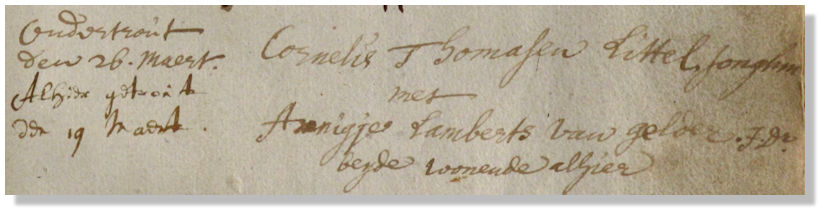 Ondertrout
den 26. Maert.
Alhier getrout
den 19 Maert.
Cornelis Thomasen Littel, Jonghm
met
Annigjes Lamberts van gelder. J:dr
beyde woonende alhier